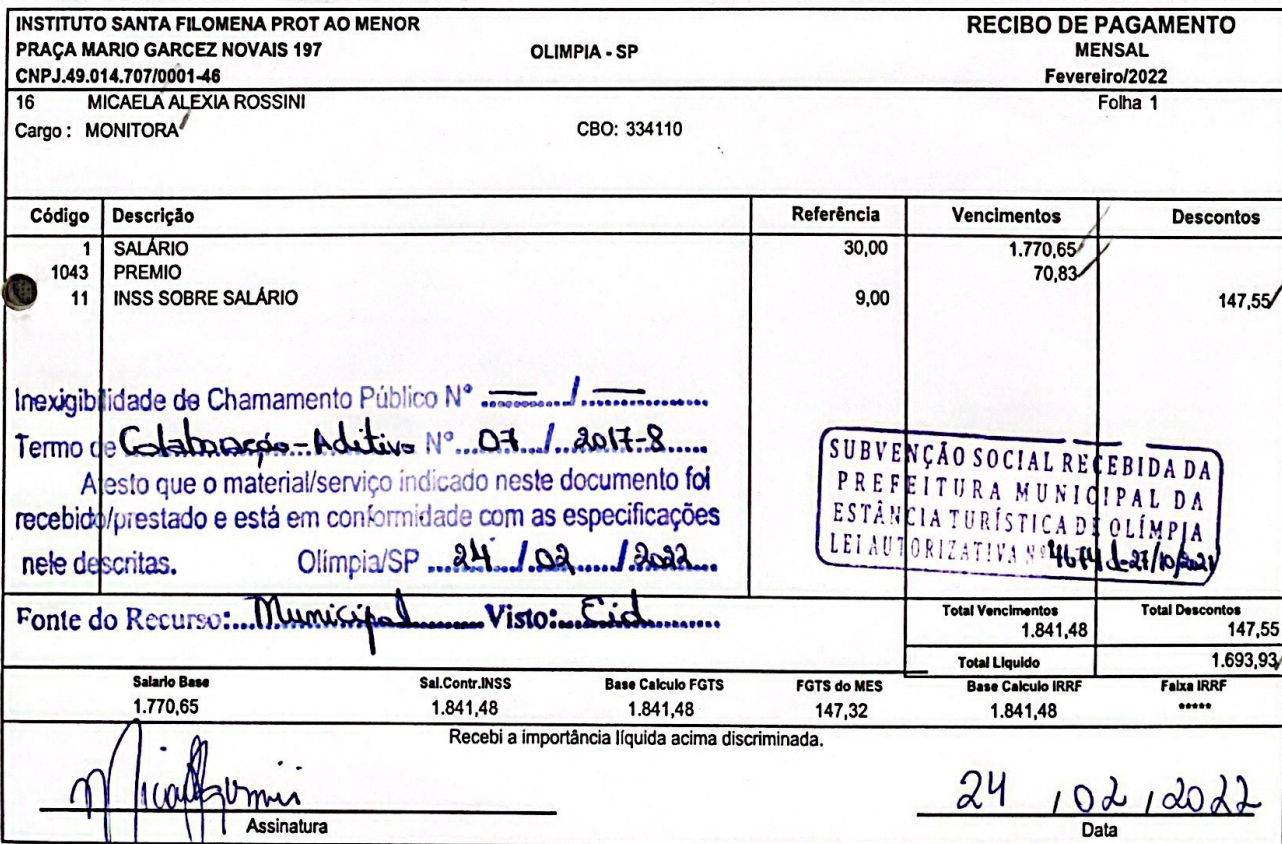 INSTITUTO SANTA FILOMENA PROT AO MENOR
RECIBO DE PAGAMENTO
PRAÇA MARIO GARCEZ NOVAIS 197
OLIMPIA - SP
MENSAL
CNPJ.49.014.707/0001-46
Fevereiro/2022
16 MICAELA ALEXIA ROSSINI
Folha 1
Cargo : MONITORA
CBO: 334110
Código Descrição Referência Vencimentos Descontos
1 SALÁRIO 30,00 1.770,65
1043 PREMIO 70,83
11 INSS SOBRE SALÁRIO 9,00 147,55
Inexigibilidade de Chamamento Público N° ......... / .........
Termo de Colaboração - Aditivo N° 07 / 2017-8
Atesto que o material/serviço indicado neste documento foi
recebido/prestado e está em conformidade com as especificações
nele descritas. Olímpia/SP 24 / 02 / 2022
SUBVENÇÃO SOCIAL RECEBIDA DA
PREFEITURA MUNICIPAL DA
ESTÂNCIA TURÍSTICA DE OLÍMPIA
LEI AUTORIZATIVA Nº 4674 d-27/10/2021
Fonte do Recurso: Municipal Visto: Cid
Total Vencimentos Total Descontos
1.841,48 147,55
Total Liquido 1.693,93
Salario Base Sal.Contr.INSS Base Calculo FGTS FGTS do MES Base Calculo IRRF Faixa IRRF
1.770,65 1.841,48 1.841,48 147,32 1.841,48 *****
Recebi a importância líquida acima discriminada.
24 / 02 / 2022
Assinatura
Data